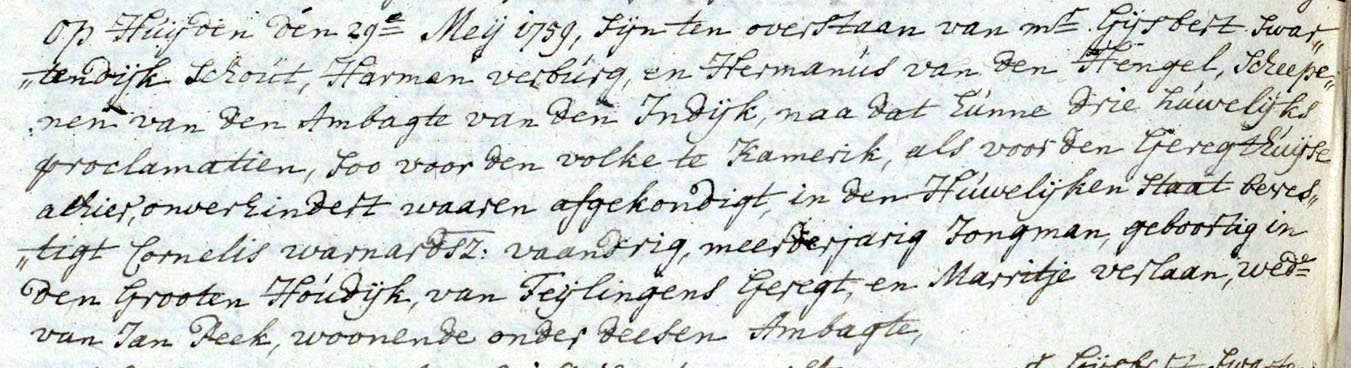 Op Huijden den 29e Meij 1759, sijn ten overstaan van mr. Gijsbert Swar„
„tendijk Schout, Harmen verburg, en Hermanus van den Hengel, Scheepe„
„nen van den Ambagte van den Indijk, naa dat hunne drie huwelijks
proclamatien, soo voor den volke te Kamerik, als voor den Geregthuijse
alhier, onverhindert waaren afgekondigt, in den Huwelijken staat beves„
„tigt Cornelis warnardsz: vaandrig, meerderjarig Jongman, geboortig in
den Grooten Houdijk, van Teijlingens Geregt, en Marritje verlaan, wede
van Jan Peek, woonende onder deesen Ambagte,